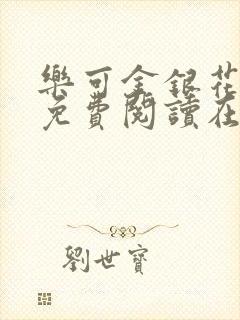 樂可金銀花
免費閱讀在
劉世寶